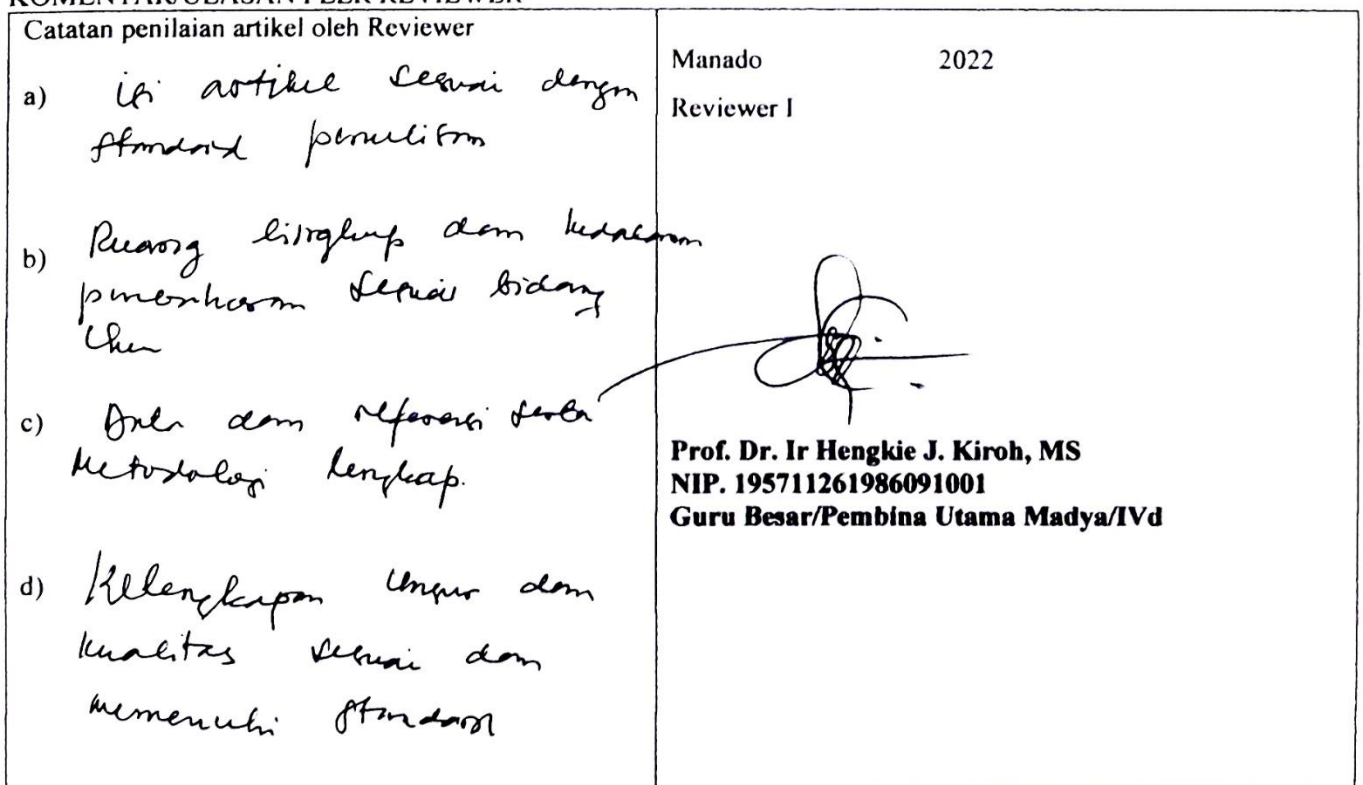 KOMENTAR/ULASAN PEER REVIEWER
Catatan penilaian artikel oleh Reviewer
a) isi artikel sesuai dengan
standard penulisan
b) Ruang lingkup dan kedalaman
pembahasan sesuai bidang
Ilmu
c) Data dan referensi serta
Metodologi lengkap.
d) Kelengkapan unsur dan
kualitas sesuai dan
memenuhi standard
Manado 2022
Reviewer I
Prof. Dr. Ir Hengkie J. Kiroh, MS
NIP. 195711261986091001
Guru Besar/Pembina Utama Madya/IVd